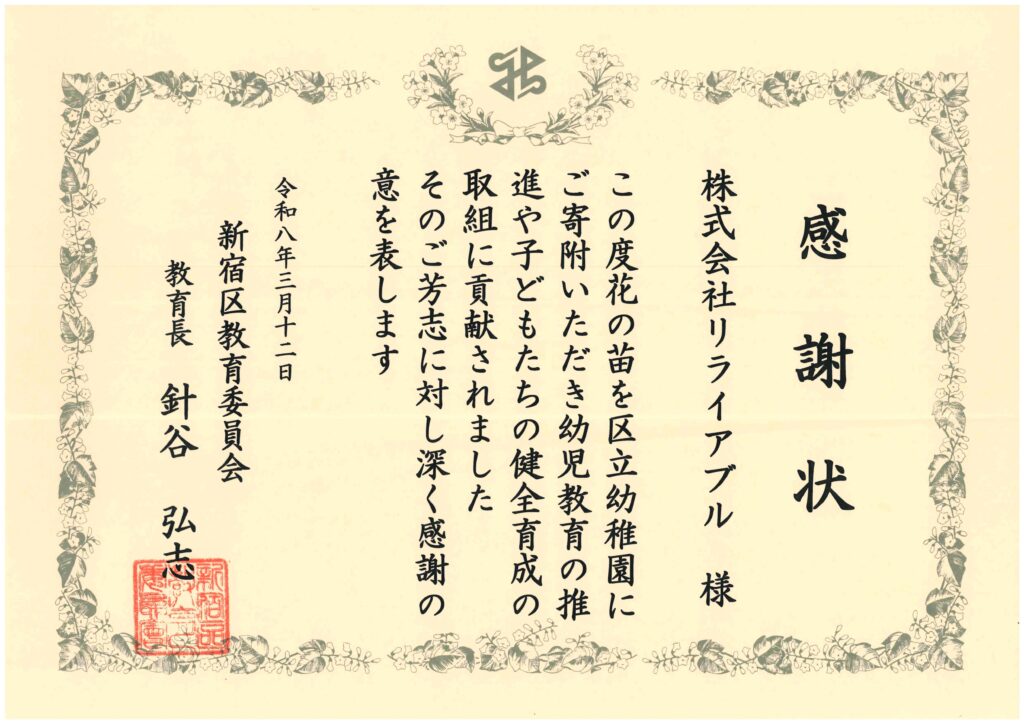 感謝状
株式会社リライアブル 様
この度花の苗を区立幼稚園に
ご寄附いただき幼児教育の推
進や子どもたちの健全育成の
取組に貢献されました
そのご芳志に対し深く感謝の
意を表します
令和八年三月十二日
新宿区教育委員会
教育長 針谷 弘志